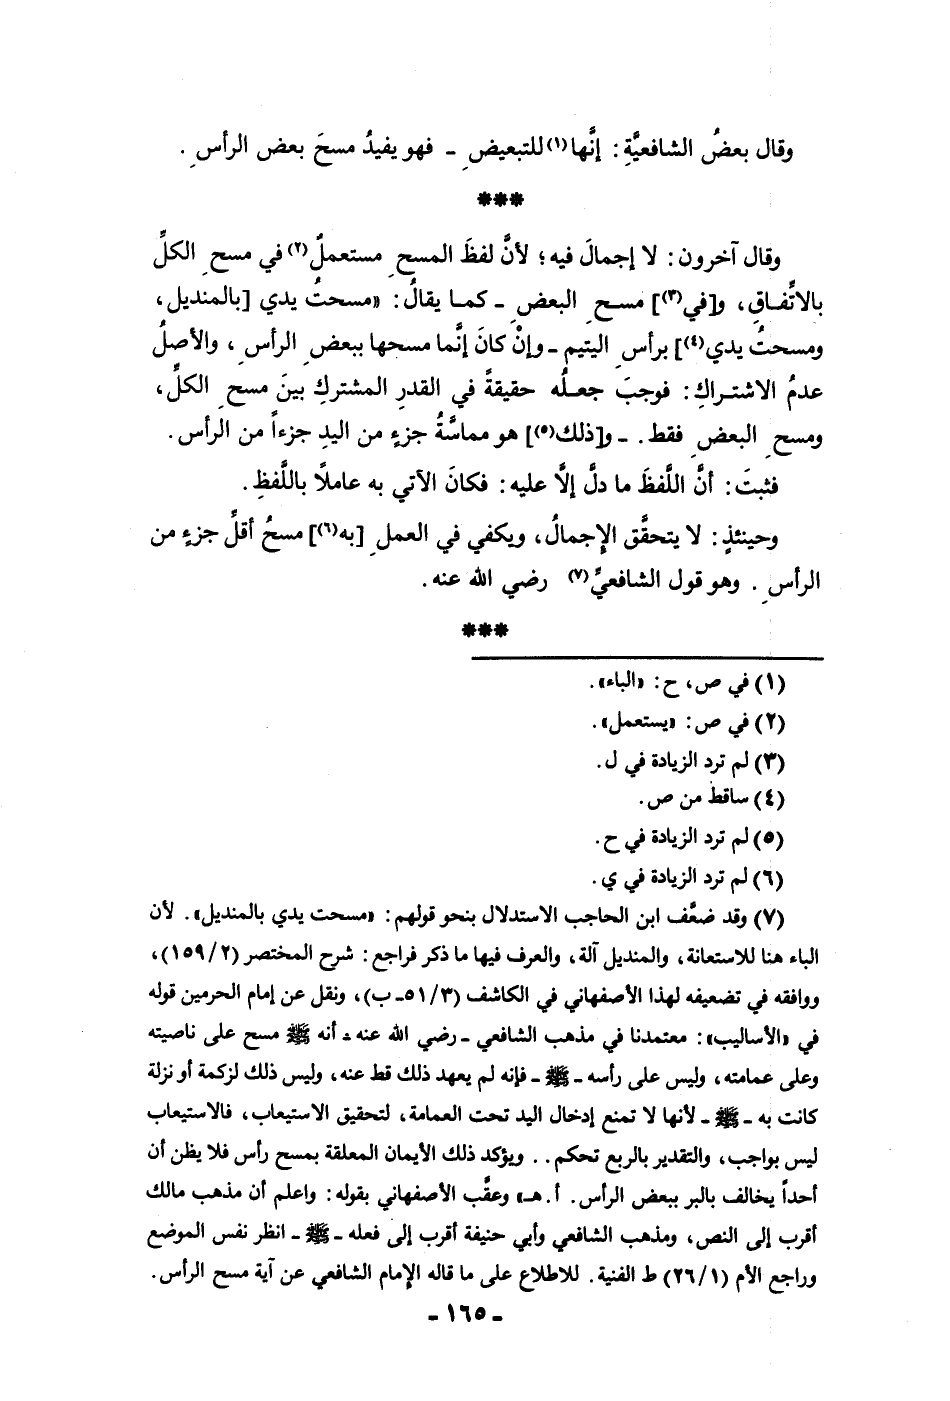 وقال بعضُ الشافعيَّةِ: إنَّها(١) للتبعيضِ ـ فهو يفيدُ مسحَ بعض الرأسِ.
***
وقال آخرون: لا إجمالَ فيه؛ لأنَّ لفظَ المسحِ مستعملٌ(٢) في مسحِ الكلِّ
بالاتِّفاقِ، و[في(٣)] مسحِ البعضِ ـ كما يقالُ: «مسحتُ يدي [بالمنديل،
ومسحتُ يدي(٤)] برأسِ اليتيم ـ وإنْ كانَ إنَّما مسحها ببعضِ الرأسِ، والأصلُ
عدمُ الاشتراكِ: فوجبَ جعلُه حقيقةً في القدرِ المشتركِ بينَ مسحِ الكلِّ،
ومسحِ البعضِ فقط. ـ و[ذلك(٥)] هو مماسَّةُ جزءٍ من اليدِ جزءاً من الرأس.
فثبتَ: أنَّ اللَّفظَ ما دلَّ إلَّا عليه: فكانَ الآتي به عاملًا باللَّفظِ.
وحينئذٍ: لا يتحقَّق الإجمالُ، ويكفي في العملِ [به(٦)] مسحُ أقلِّ جزءٍ من
الرأسِ. وهو قول الشافعيِّ(٧) رضي الله عنه.
***
(١) في ص، ح: «الباء».
(٢) في ص: «يستعمل».
(٣) لم ترد الزيادة في ل.
(٤) ساقط من ص.
(٥) لم ترد الزيادة في ح.
(٦) لم ترد الزيادة في ي.
(٧) وقد ضعَّف ابن الحاجب الاستدلال بنحو قولهم: «مسحت يدي بالمنديل». لأن
الباء هنا للاستعانة، والمنديل آلة، والعرف فيها ما ذكر فراجع: شرح المختصر (١٥٩/٢)،
ووافقه في تضعيفه لهذا الأصفهاني في الكاشف (٥١/٣ـ ب)، ونقل عن إمام الحرمين قوله
في «الأساليب»: معتمدنا في مذهب الشافعي ـ رضي الله عنه ـ أنه ﷺ مسح على ناصيته
وعلى عمامته، وليس على رأسه ـ ﷺ ـ فإنه لم يعهد ذلك قط عنه، وليس ذلك لزكمة أو نزلة
كانت به ـ ﷺ ـ لأنها لا تمنع إدخال اليد تحت العمامة، لتحقيق الاستيعاب، فالاستيعاب
ليس بواجب، والتقدير بالربع تحكم.. ويؤكد ذلك الأيمان المعلقة بمسح رأس فلا يظن أن
أحداً يخالف بالبر ببعض الرأس. أ.هـ» وعقَّب الأصفهاني بقوله: واعلم أن مذهب مالك
أقرب إلى النص، ومذهب الشافعي وأبي حنيفة أقرب إلى فعله ـ ﷺ ـ انظر نفس الموضع
وراجع الأم (٢٦/١) ط الفنية. للاطلاع على ما قاله الإمام الشافعي عن آية مسح الرأس.
ـ ١٦٥ ـ